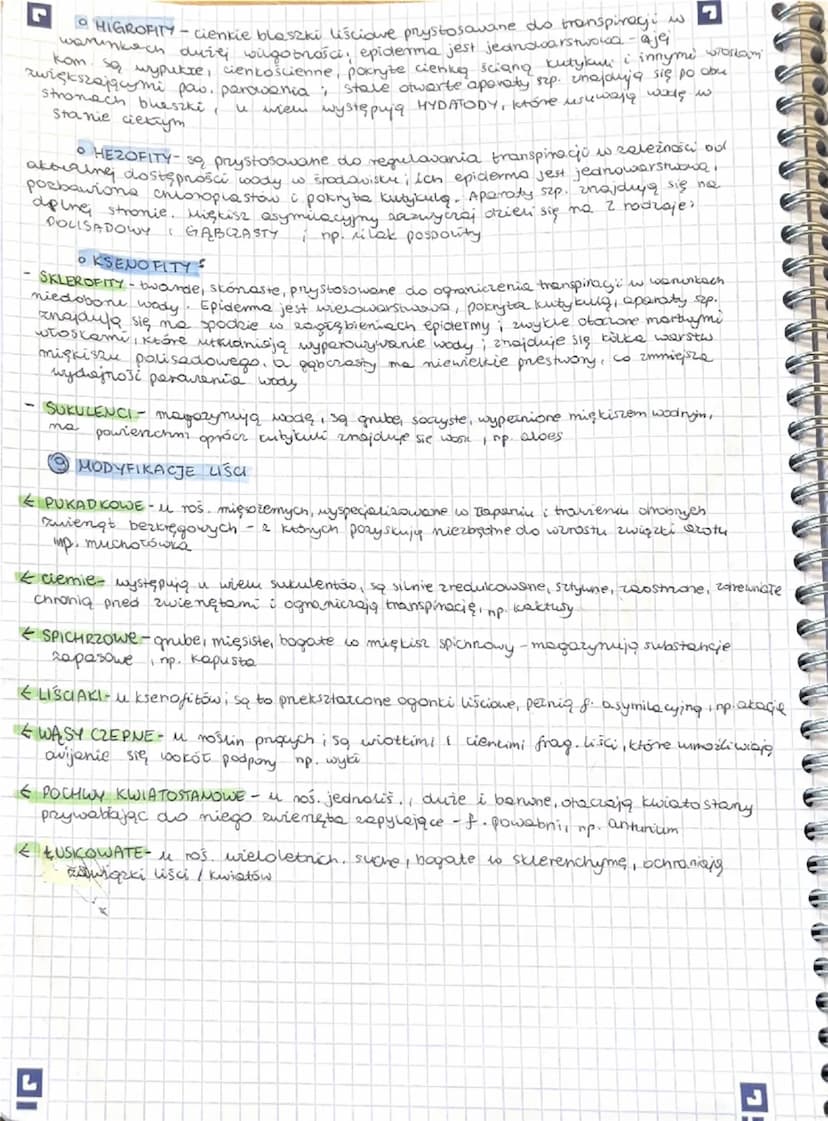 ° HIGROFITY - cienkie blaszki liściowe przystosowane do transpiracji w
warunkach dużej wilgotności, epiderma jest jednowarstwowa - a jej
kom są wypukłe, cienkościenne, pokryte cienką ścianą kutykuli i innymi włoskami
zwiększającymi pow. parowania ; stale otwarte aparaty szp. znajdują się po obu
stronach blaszki, u wielu występują HYDATODY, które usuwają wodę w
stanie ciekłym
° MEZOFITY - są przystosowane do regulowania transpiracji w zależności od
aktualnej dostępności wody w środowisku; ich epiderma jest jednowarstwowa,
pozbawiona chloroplastów i pokryta kutykulą. Aparaty szp. znajdują się na
dolnej stronie. Miękisz asymilacyjny zazwyczaj dzieli się na 2 rodzaje:
POLISADOWY i GĄBCZASTY ; np. lilak pospolity
° KSEROFITY:
- SKLEROFITY - twarde, skórzaste, przystosowane do ograniczenia transpiracji w warunkach
niedoboru wody. Epiderma jest wielowarstwowa, pokryta kutykulą, aparaty szp.
znajdują się na spodzie w zagłębieniach epidermy ; zwykle otoczone martwymi
włoskami, które utrudniają wyparowywanie wody ; znajduje się kilka warstw
miękiszu polisadowego, a gąbczasty ma niewielkie przestwory, co zmniejsza
wydajność parowania wody
- SUKULENCI - magazynują wodę, są grube, soczyste, wypełnione miękiszem wodnym,
na powierzchni oprócz kutykuli znajduje się wosk, np. aloes
⑨ MODYFIKACJE LIŚCI
← PUŁAPKOWE - u roś. mięsożernych, wyspecjalizowane w łapaniu i trawieniu drobnych
zwierząt bezkręgowych - z których pozyskują niezbędne do wzrostu związki azotu
np. muchołówka
← ciernie - występują u wielu sukulentów, są silnie zredukowane, sztywne, zaostrzone, zdrewniałe
chronią przed zwierzętami i ograniczają transpirację, np. kaktusy
← SPICHRZOWE - grube, mięsiste, bogate w miękisz spichrzowy - magazynują substancje
zapasowe, np. kapusta
← LIŚCIAKI - u kserofitów ; są to przekształcone ogonki liściowe, pełnią f. asymilacyjną, np. akacje
← WĄSY CZEPNE - u roślin pnących ; są wiotkimi i cienkimi frag. liści, które umożliwiają
owijanie się wokół podpory np. wyki
← POCHWY KWIATOSTANOWE - u roś. jednoliś., duże i barwne, otaczają kwiatostany
przywabiając do niego zwierzęta zapylające - f. powabni, np. anturium
← ŁUSKOWATE - u roś. wieloletnich. suche, bogate w sklerenchymę, ochraniają
zawiązki liści / kwiatów